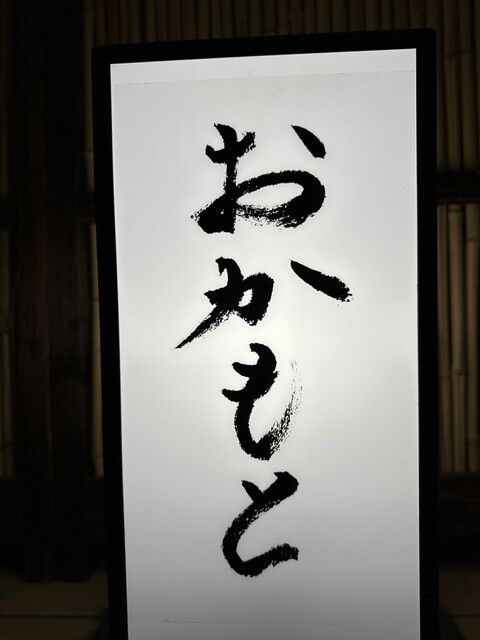 おかもと